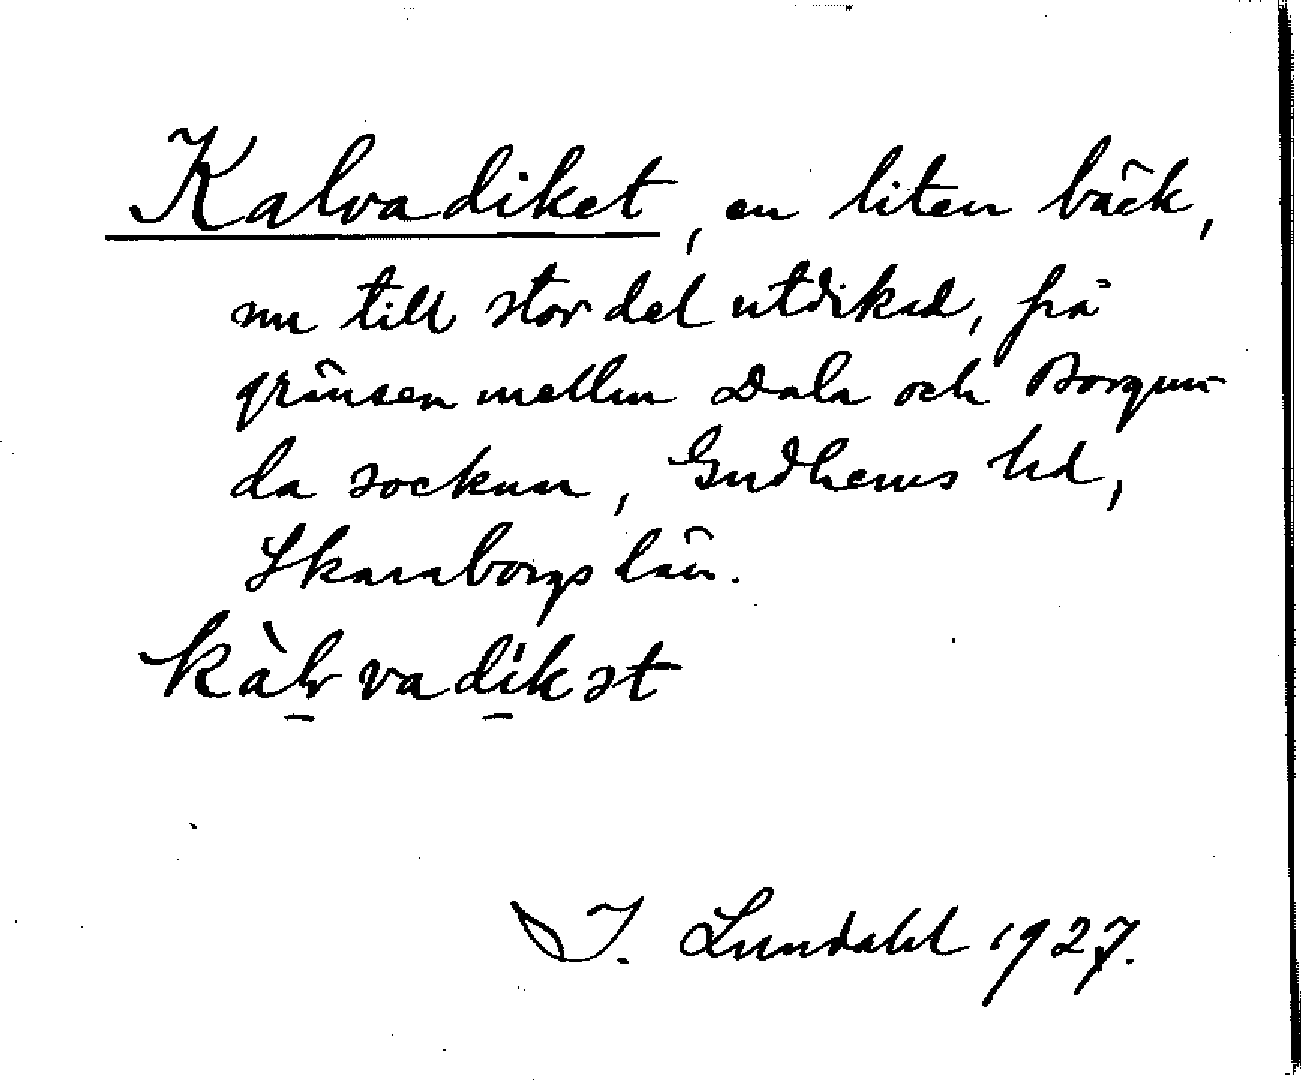 Kalvadiket, en liten bäck,
nu till stor del utdikad, från
gränsen mellan Dala och Borgun-
da socknar, Gudhems hd,
Skaraborgs län.
kàlvadikət
I. Lundahl 1927.